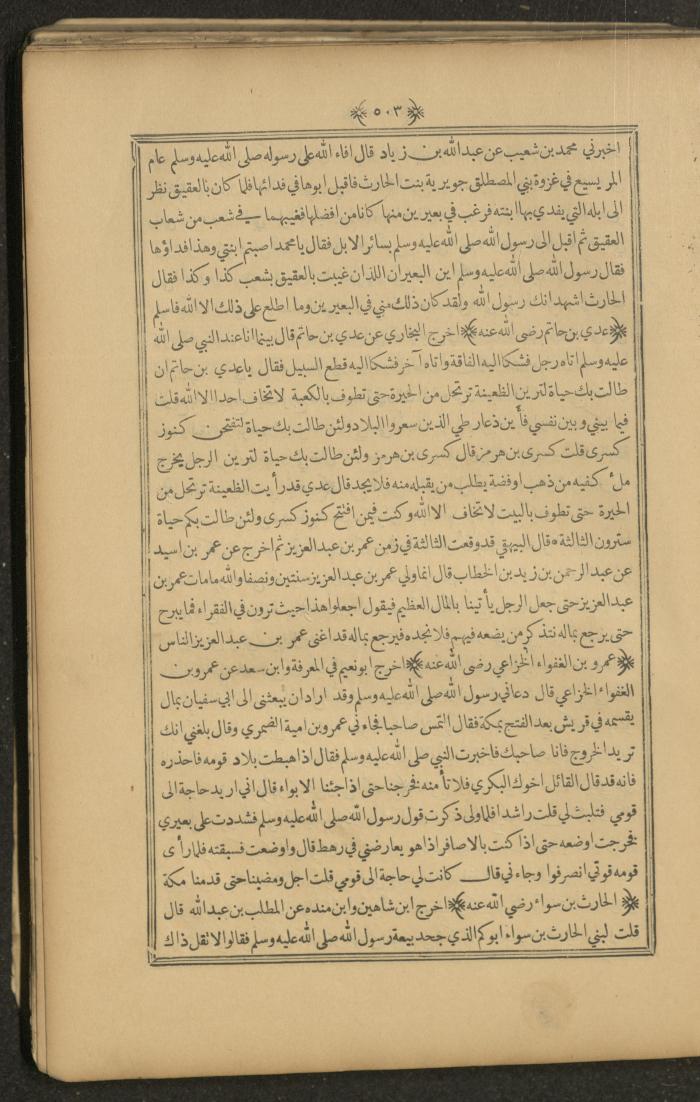 ﴿٥٠٣﴾
اخبرني محمد بن شعيب عن عبدالله بن زياد قال افاء الله على رسوله صلى الله عليه وسلم عام
المريسيع في غزوة بني المصطلق جويرية بنت الحارث فاقبل ابوها في فدائها فلما كان بالعقيق نظر
الى ابله التي يفدي بها ابنته فرغب في بعيرين منها كانا من افضلها فغيبهما في شعب من شعاب
العقيق ثم اقبل الى رسول الله صلى الله عليه وسلم بسائر الابل فقال يا محمد اصبتم ابنتي وهذا فداؤها
فقال رسول الله صلى الله عليه وسلم اين البعيران اللذان غيبت بالعقيق بشعب كذا وكذا فقال
الحارث اشهد انك رسول الله ولقد كان ذلك مني في البعيرين وما اطلع على ذلك الا الله فاسلم
﴿عدي بن حاتم رضى الله عنه﴾ اخرج البخاري عن عدي بن حاتم قال بينما انا عند النبي صلى الله
عليه وسلم اتاه رجل فشكا اليه الفاقة واتاه آخر فشكا اليه قطع السبيل فقال يا عدي بن حاتم ان
طالت بك حياة لترين الظعينة ترتحل من الحيرة حتى تطوف بالكعبة لا تخاف احدا الا الله قلت
فيما بيني وبين نفسي فأين ذعار طي الذين سعروا البلاد ولئن طالت بك حياة لتفتحن كنوز
كسرى قلت كسرى بن هرمز قال كسرى بن هرمز ولئن طالت بك حياة لترين الرجل يخرج
ملء كفيه من ذهب او فضة يطلب من يقبله منه فلا يجد قال عدي قد رأيت الظعينة ترتحل من
الحيرة حتى تطوف بالبيت لا تخاف الا الله وكنت فيمن افتتح كنوز كسرى ولئن طالت بكم حياة
سترون الثالثة * قال البيهقي قد وقعت الثالثة في زمن عمر بن عبد العزيز ثم اخرج عن عمر بن اسيد
عن عبد الرحمن بن زيد بن الخطاب قال انما ولي عمر بن عبد العزيز سنتين ونصفا والله ما مات عمر بن
عبد العزيز حتى جعل الرجل يأتينا بالمال العظيم فيقول اجعلوا هذا حيث ترون في الفقراء فما يبرح
حتى يرجع بماله نتذكر من يضعه فيهم فلا نجده فيرجع بماله قد اغنى عمر بن عبد العزيز الناس
﴿عمرو بن الغفواء الخزاعي رضى الله عنه﴾ اخرج ابو نعيم في المعرفة وابن سعد عن عمرو بن
الغفواء الخزاعي قال دعاني رسول الله صلى الله عليه وسلم وقد اراد ان يبعثنى الى ابي سفيان بمال
يقسمه في قريش بعد الفتح بمكة فقال التمس صاحبا فجاءني عمرو بن امية الضمري وقال بلغني انك
تريد الخروج فانا صاحبك فاخبرت النبي صلى الله عليه وسلم فقال اذا هبطت بلاد قومه فاحذره
فانه قد قال القائل اخوك البكري فلا تأمنه فخرجنا حتى اذا جئنا الابواء قال اني اريد حاجة الى
قومي فتلبث لي قلت راشدا فلما ولى ذكرت قول رسول الله صلى الله عليه وسلم فشددت على بعيري
فخرجت اوضعه حتى اذا كنت بالاصافر اذا هو يعارضني في رهط قال واوضعت فسبقته فلما رأى
قومه فوتي انصرفوا وجاءني قال كانت لي حاجة الى قومي قلت اجل ومضينا حتى قدمنا مكة
﴿الحارث بن سواء رضي الله عنه﴾ اخرج ابن شاهين وابن منده عن المطلب بن عبد الله قال
قلت لبني الحارث بن سواء ابوكم الذي جحد بيعة رسول الله صلى الله عليه وسلم فقالوا لا تقل ذاك